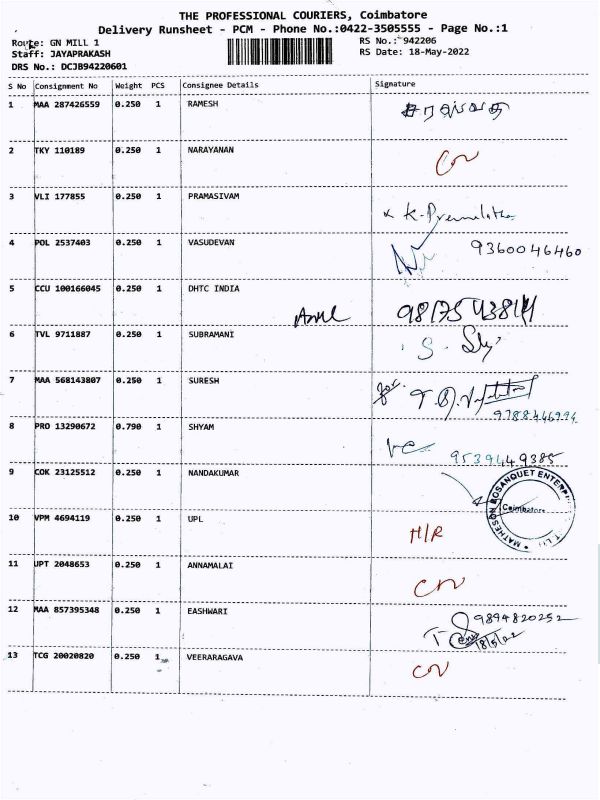 THE PROFESSIONAL COURIERS, Coimbatore
Delivery Runsheet - PCM - Phone No.:0422-3505555 - Page No.:1
Route: GN MILL 1
RS No.: 942206
Staff: JAYAPRAKASH
RS Date: 18-May-2022
DRS No.: DCJB94220601
S No Consignment No Weight PCS Consignee Details Signature
1 MAA 287426559 0.250 1 RAMESH
2 TKY 110189 0.250 1 NARAYANAN CN
3 VLI 177855 0.250 1 PRAMASIVAM K. Premalatha
4 POL 2537403 0.250 1 VASUDEVAN 9360046460
5 CCU 100166045 0.250 1 DHTC INDIA
6 TVL 9711887 0.250 1 SUBRAMANI S.
7 MAA 568143807 0.250 1 SURESH for.
8 PRO 13290672 0.790 1 SHYAM 9539449385
9 COK 23125512 0.250 1 NANDAKUMAR MATHESON BOSANQUET Coimbatore
10 VPM 4694119 0.250 1 UPL H/R
11 UPT 2048653 0.250 1 ANNAMALAI CN
12 MAA 857395348 0.250 1 EASHWARI 9894820252
18/5/22
13 TCG 20020820 0.250 1 VEERARAGAVA CN